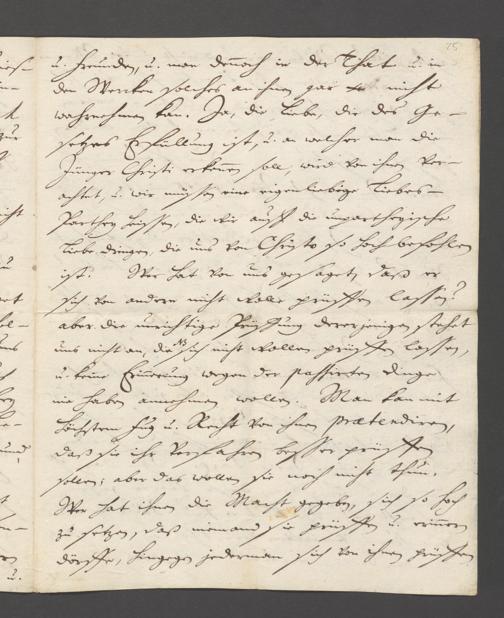 25
u. freunden, u. man dennoch in der That u. in
den Wercken solches an ihnen gar nicht
wahrnehmen kan. Ja, die Liebe, die des Ge-
setzes Erfüllung ist, u. an welcher man die
Jünger Christi erkennen soll, wird von ihnen ver-
achtet, u. wir müssen eine eigenliebige Liebes-
Parthey heissen, die wir auff die unpartheyische
Liebe dringen, die uns von Christo so hoch befohlen
ist. Wer hat von uns gesaget, daß er
sich von andern nicht wolle prüffen lassen?
aber die unrichtige Prüffung dererjenigen stehet
uns nicht an, die NB sich nicht wollen prüffen lassen,
u. keine Erinnerung wegen der passirten Dinge
nie haben annehmen wollen. Man kan mit
höchstem Fug u. Recht von ihnen prætendiren,
daß sie ihr Verfahren besser prüffen
sollen; aber das wollen sie noch nicht thun.
Wer hat ihnen die Macht gegeben, sich so hoch
zu setzen, daß niemand sie prüffen u. erinnern
dörffe, hingegen jederman sich von ihnen prüffen